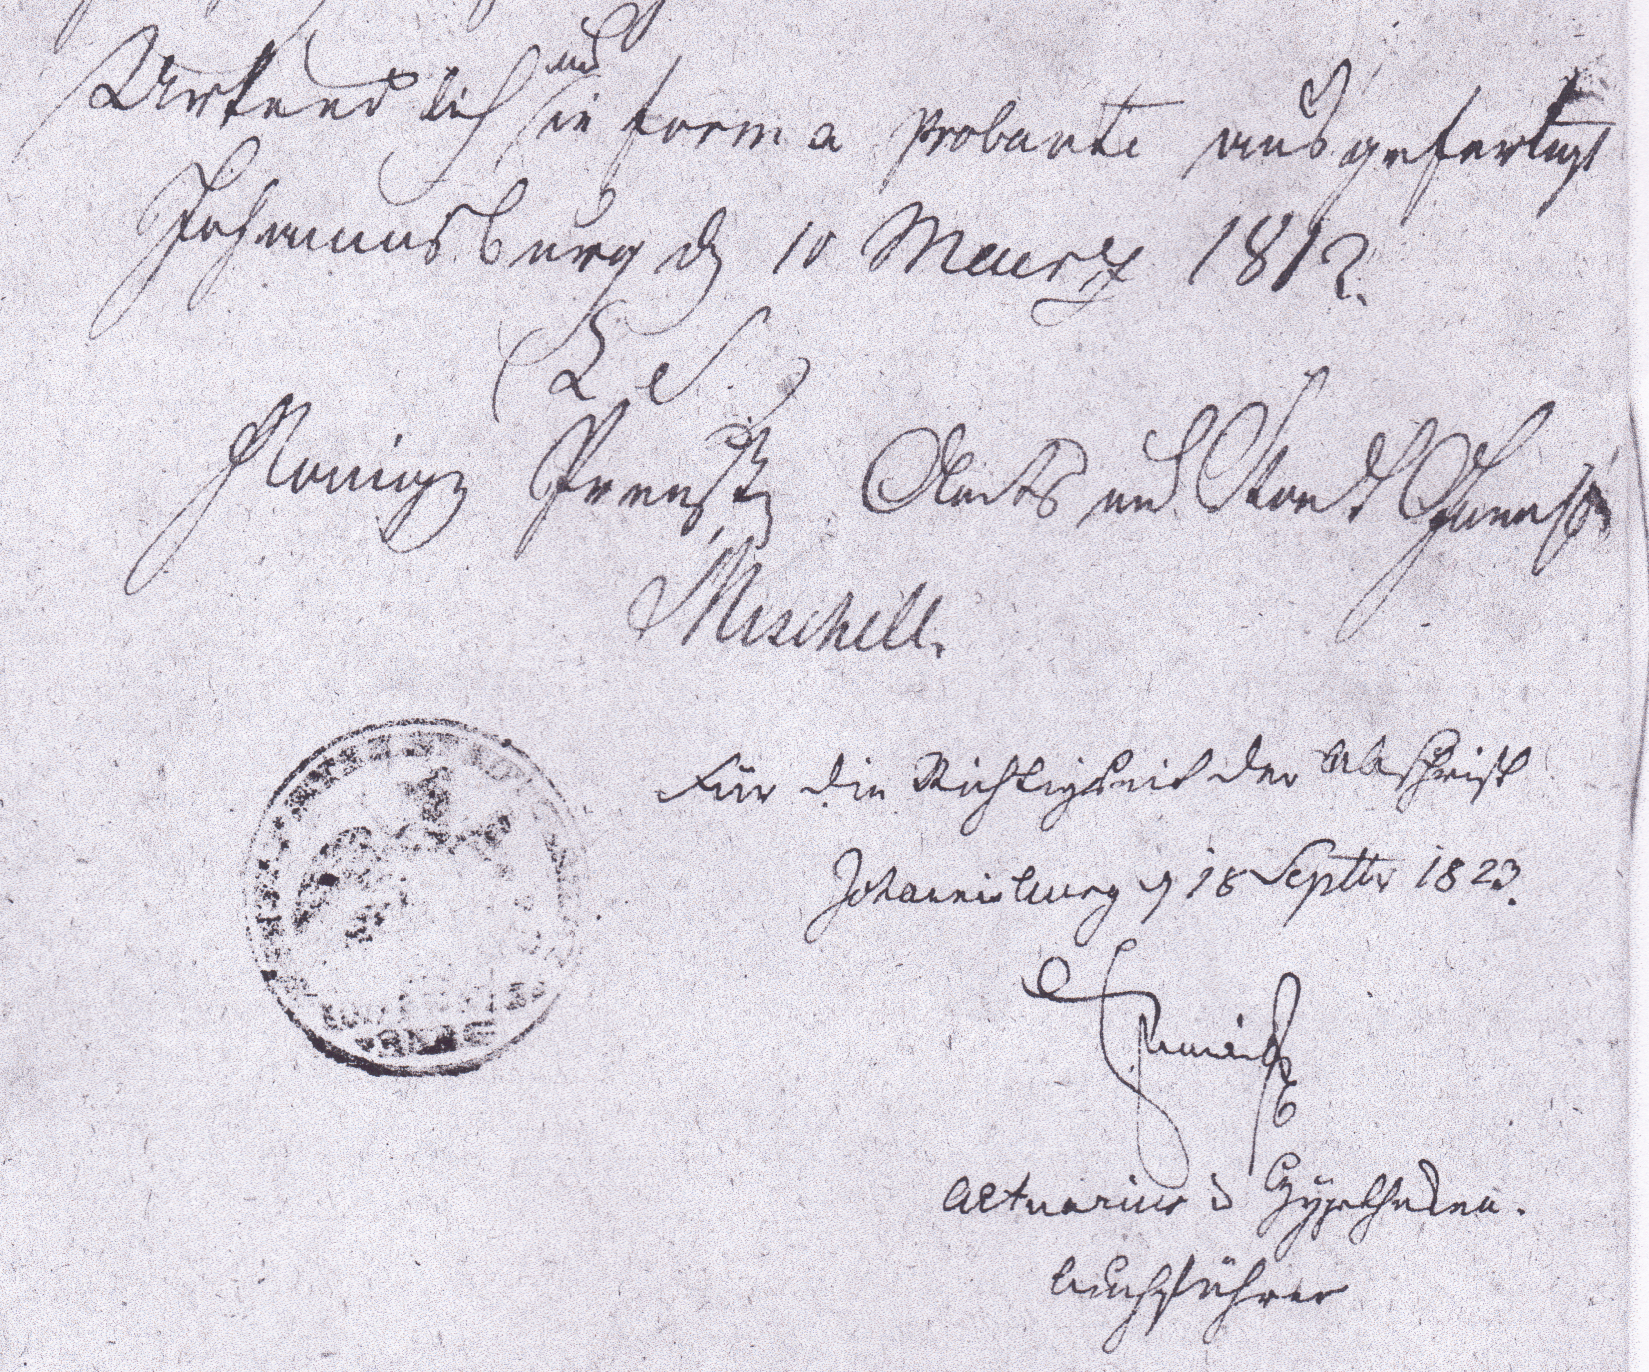 und
Urkundlich in forma probante ausgefertigt
Johannsburg d 10 Maerz 1812.
(L. S.)
Königl Preuß und Stadt Gericht
Mischell.
Für die Richtigkeit der Abschrift
Johannisburg d 18 Septbr 1823.
Actuarius u Hypotheken.
buchführer